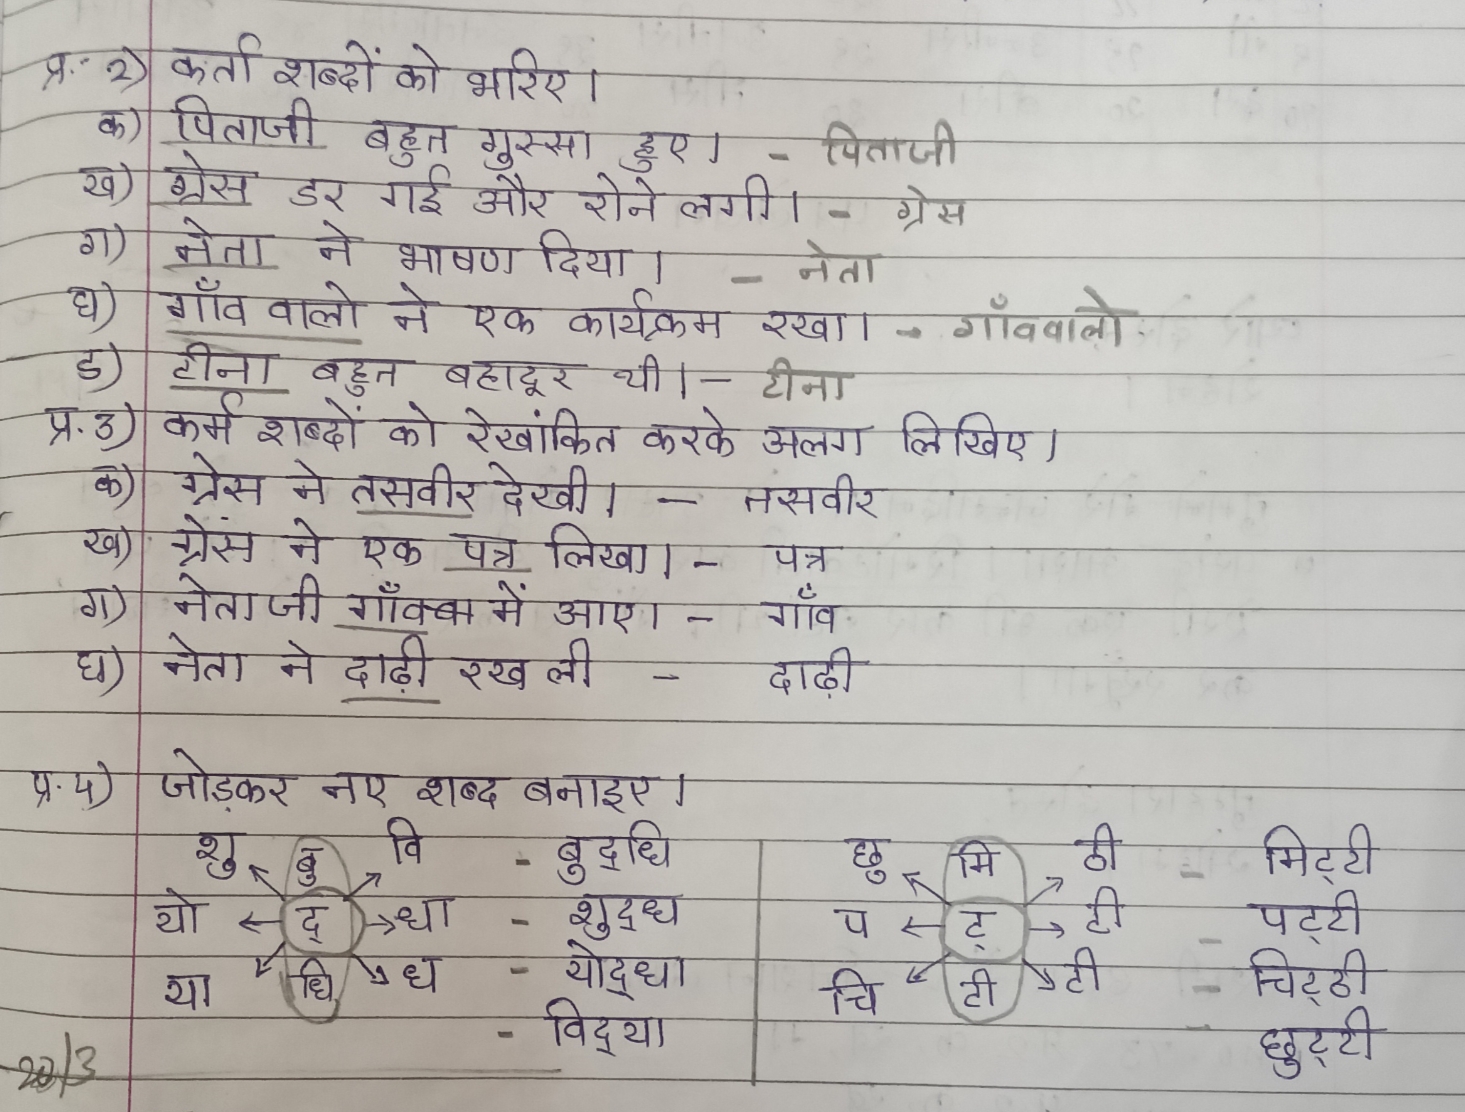 प्र. २) कर्ता शब्दों को भरिए।
क) पिताजी बहुत गुस्सा हुए। - पिताजी
ख) ग्रेस डर गई और रोने लगी। - ग्रेस
ग) नेता ने भाषण दिया। - नेता
घ) गाँव वालो ने एक कार्यक्रम रखा। - गाँववालो
ड) टीना बहुत बहादूर थी। - टीना
प्र. ३) कर्म शब्दों को रेखांकित करके अलग लिखिए।
क) ग्रेस ने तसवीर देखी। - तसवीर
ख) ग्रेस ने एक पत्र लिखा। - पत्र
ग) नेताजी में आए। - गाँव
घ) नेता ने दाढ़ी रख ली - दाढ़ी
प्र. ५) जोड़कर नए शब्द बनाइए।
शु बु वि - बुद्‌धि छु मि ठी - मिट्‌टी
यो द् धा - शुद्‌ध प ट् टी - पट्‌टी
या धि ध - योद्‌धा चि टी टी - चिट्‌ठी
- विद्‌या छुट्‌टी